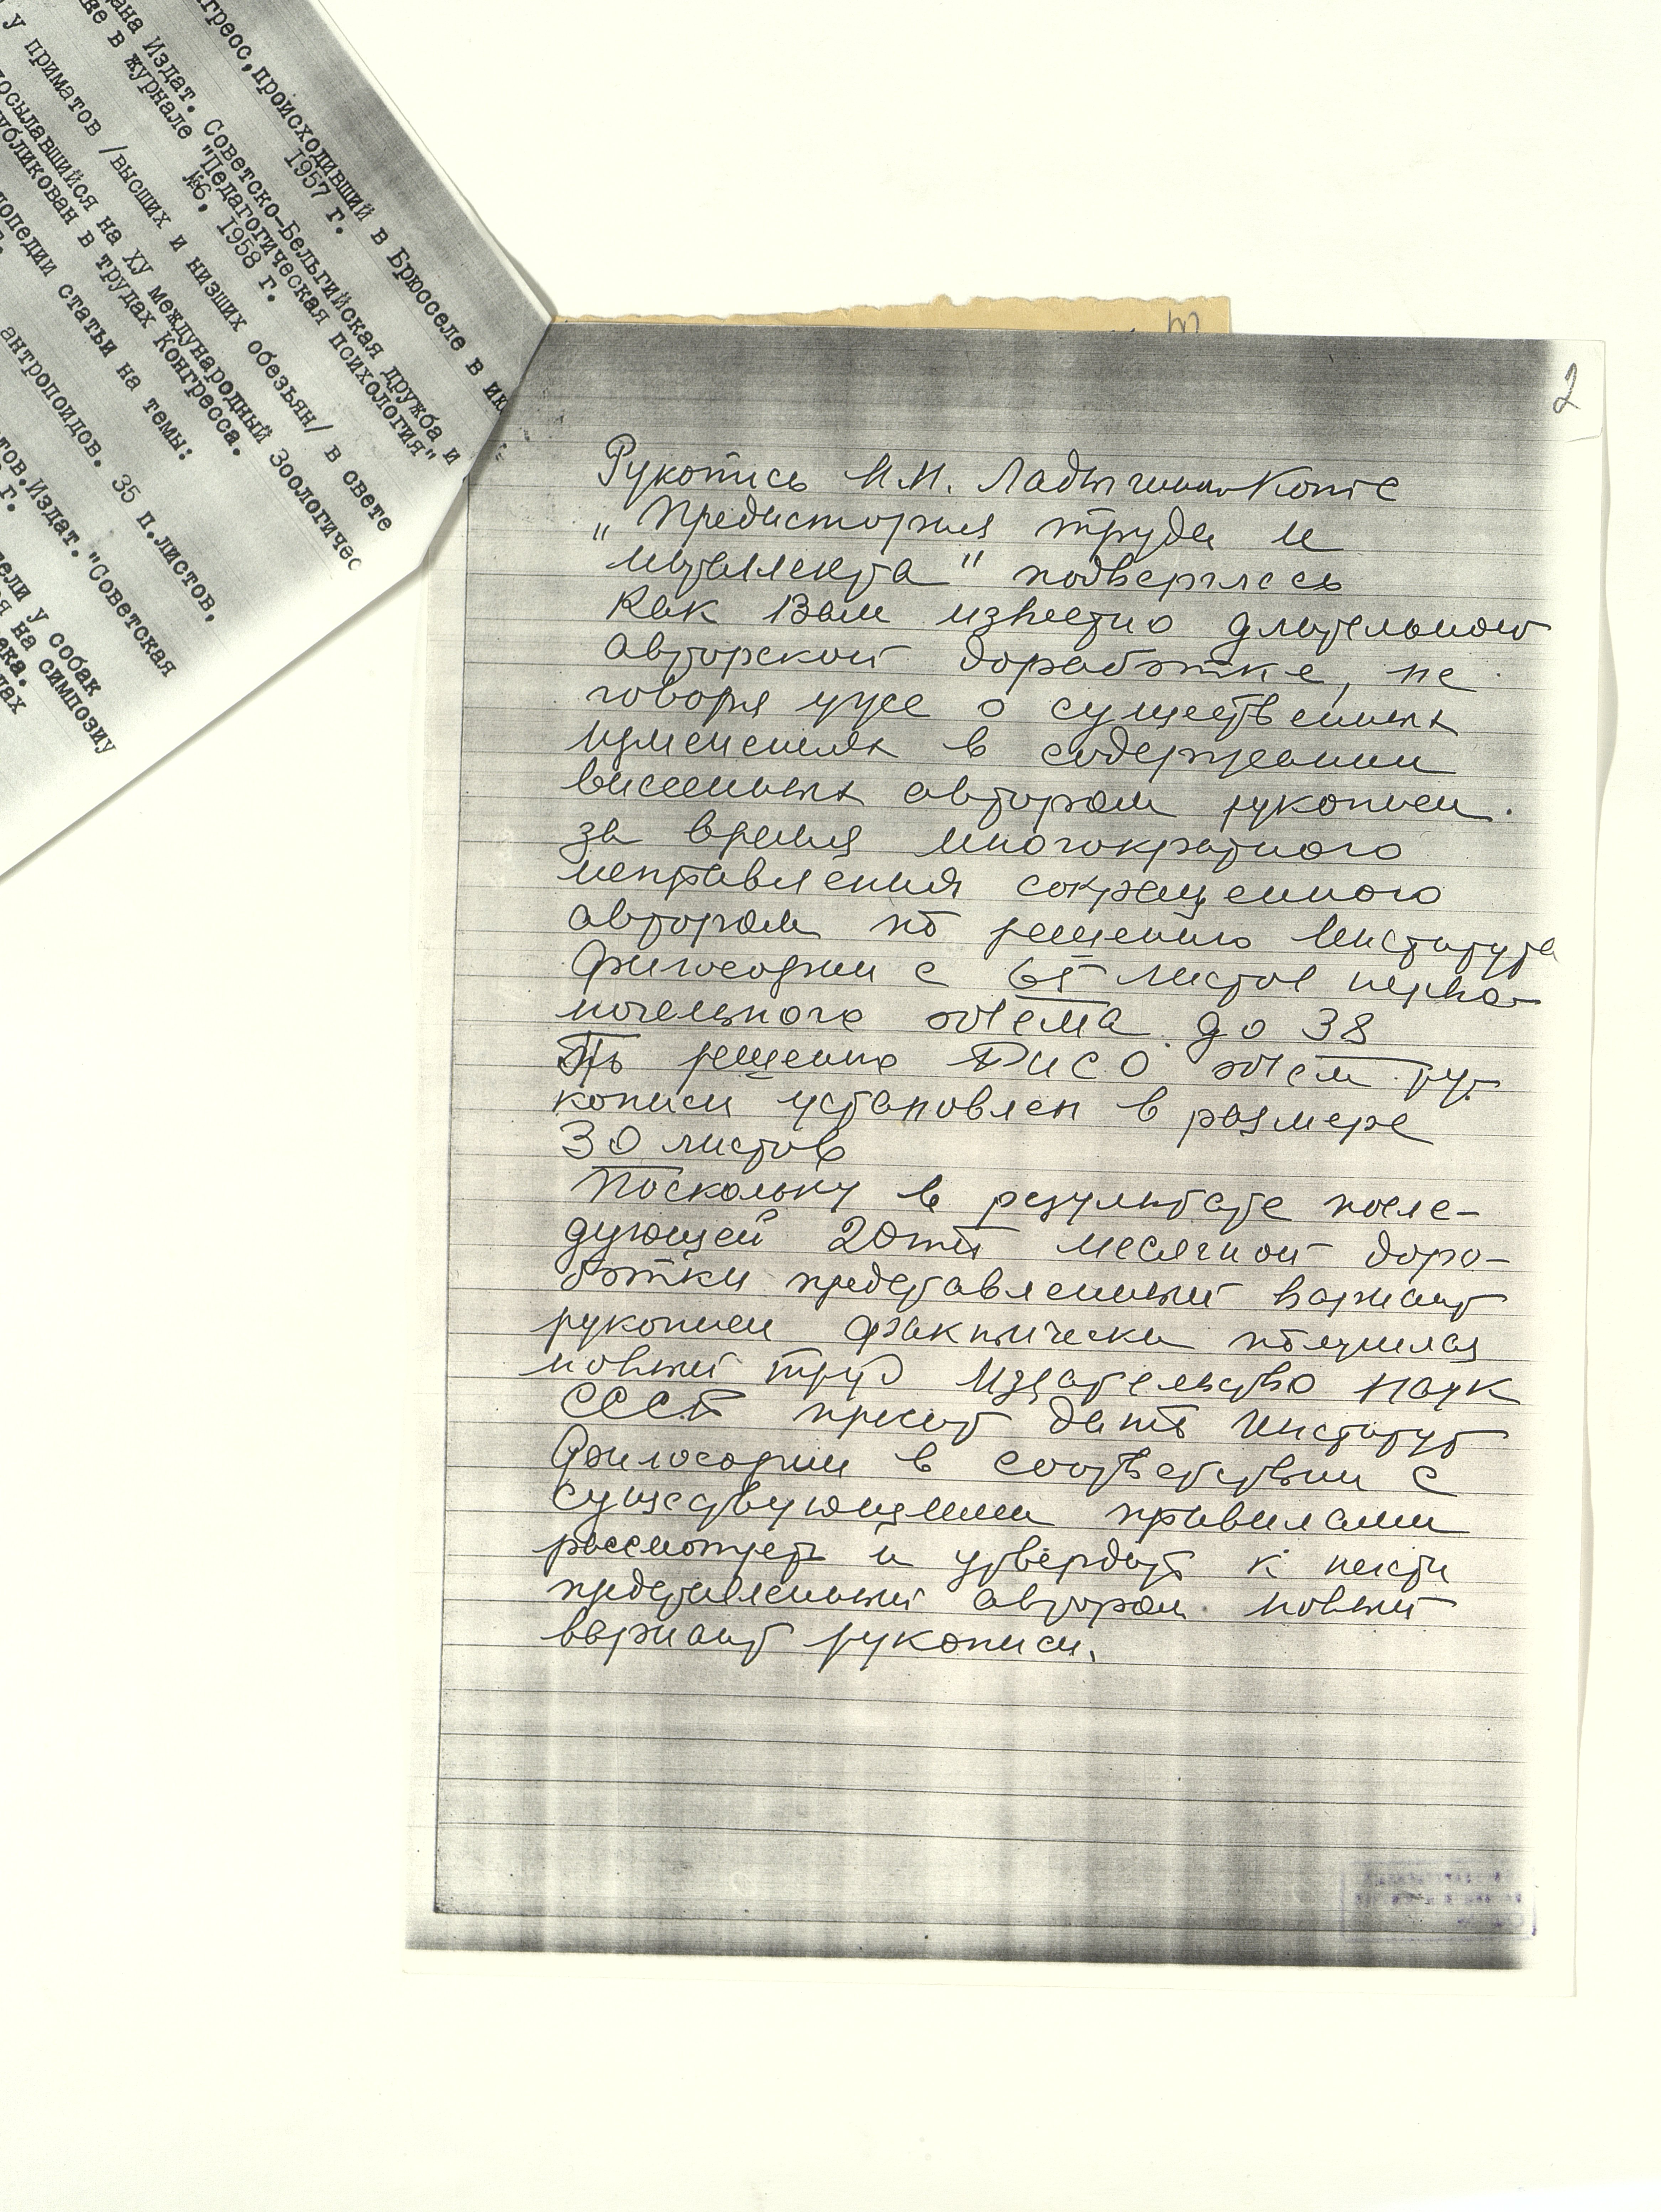 гресс, происходивший в Брюсселе в ию
1957 г.
Издат. Советско-Бельгийская дружба и
в журнале "Педагогическая психология"
№6, 1958 г.
у приматов /высших и низших обезьян/ в свете
посылавшийся на ХУ международный Зоологичес
убликован в трудах Конгресса.
лопедии статьи на темы:
антропоидов. 35 п.листов,
тов. Издат. "Советская
г.
ели у собак
я на симпозиу
ека.
дах
2
Рукопись Н.Н. Ладыгиной Котс
„Предистория труда и
интеллекта" подверглась
как Вам известно длительной
авторской доработке, не
говоря уже о существенных
изменениях в содержании
внесенных автором рукописи.
за время многократного
исправления сокращенного
автором по решению Института
Философии с 65 листов перво-
начального объема до 38
По решению РИСО объем ру-
кописи установлен в размере
30 листов
Поскольку в результате после-
дующей 20ти месячной дора-
ботки представленный вариант
рукописи фактически получился
новый труд Издательство Наук
СССР просит дать Институт
Философии в соответствии с
существующими правилами
рассмотреть и утвердить к печати
представленный автором новый
вариант рукописи.